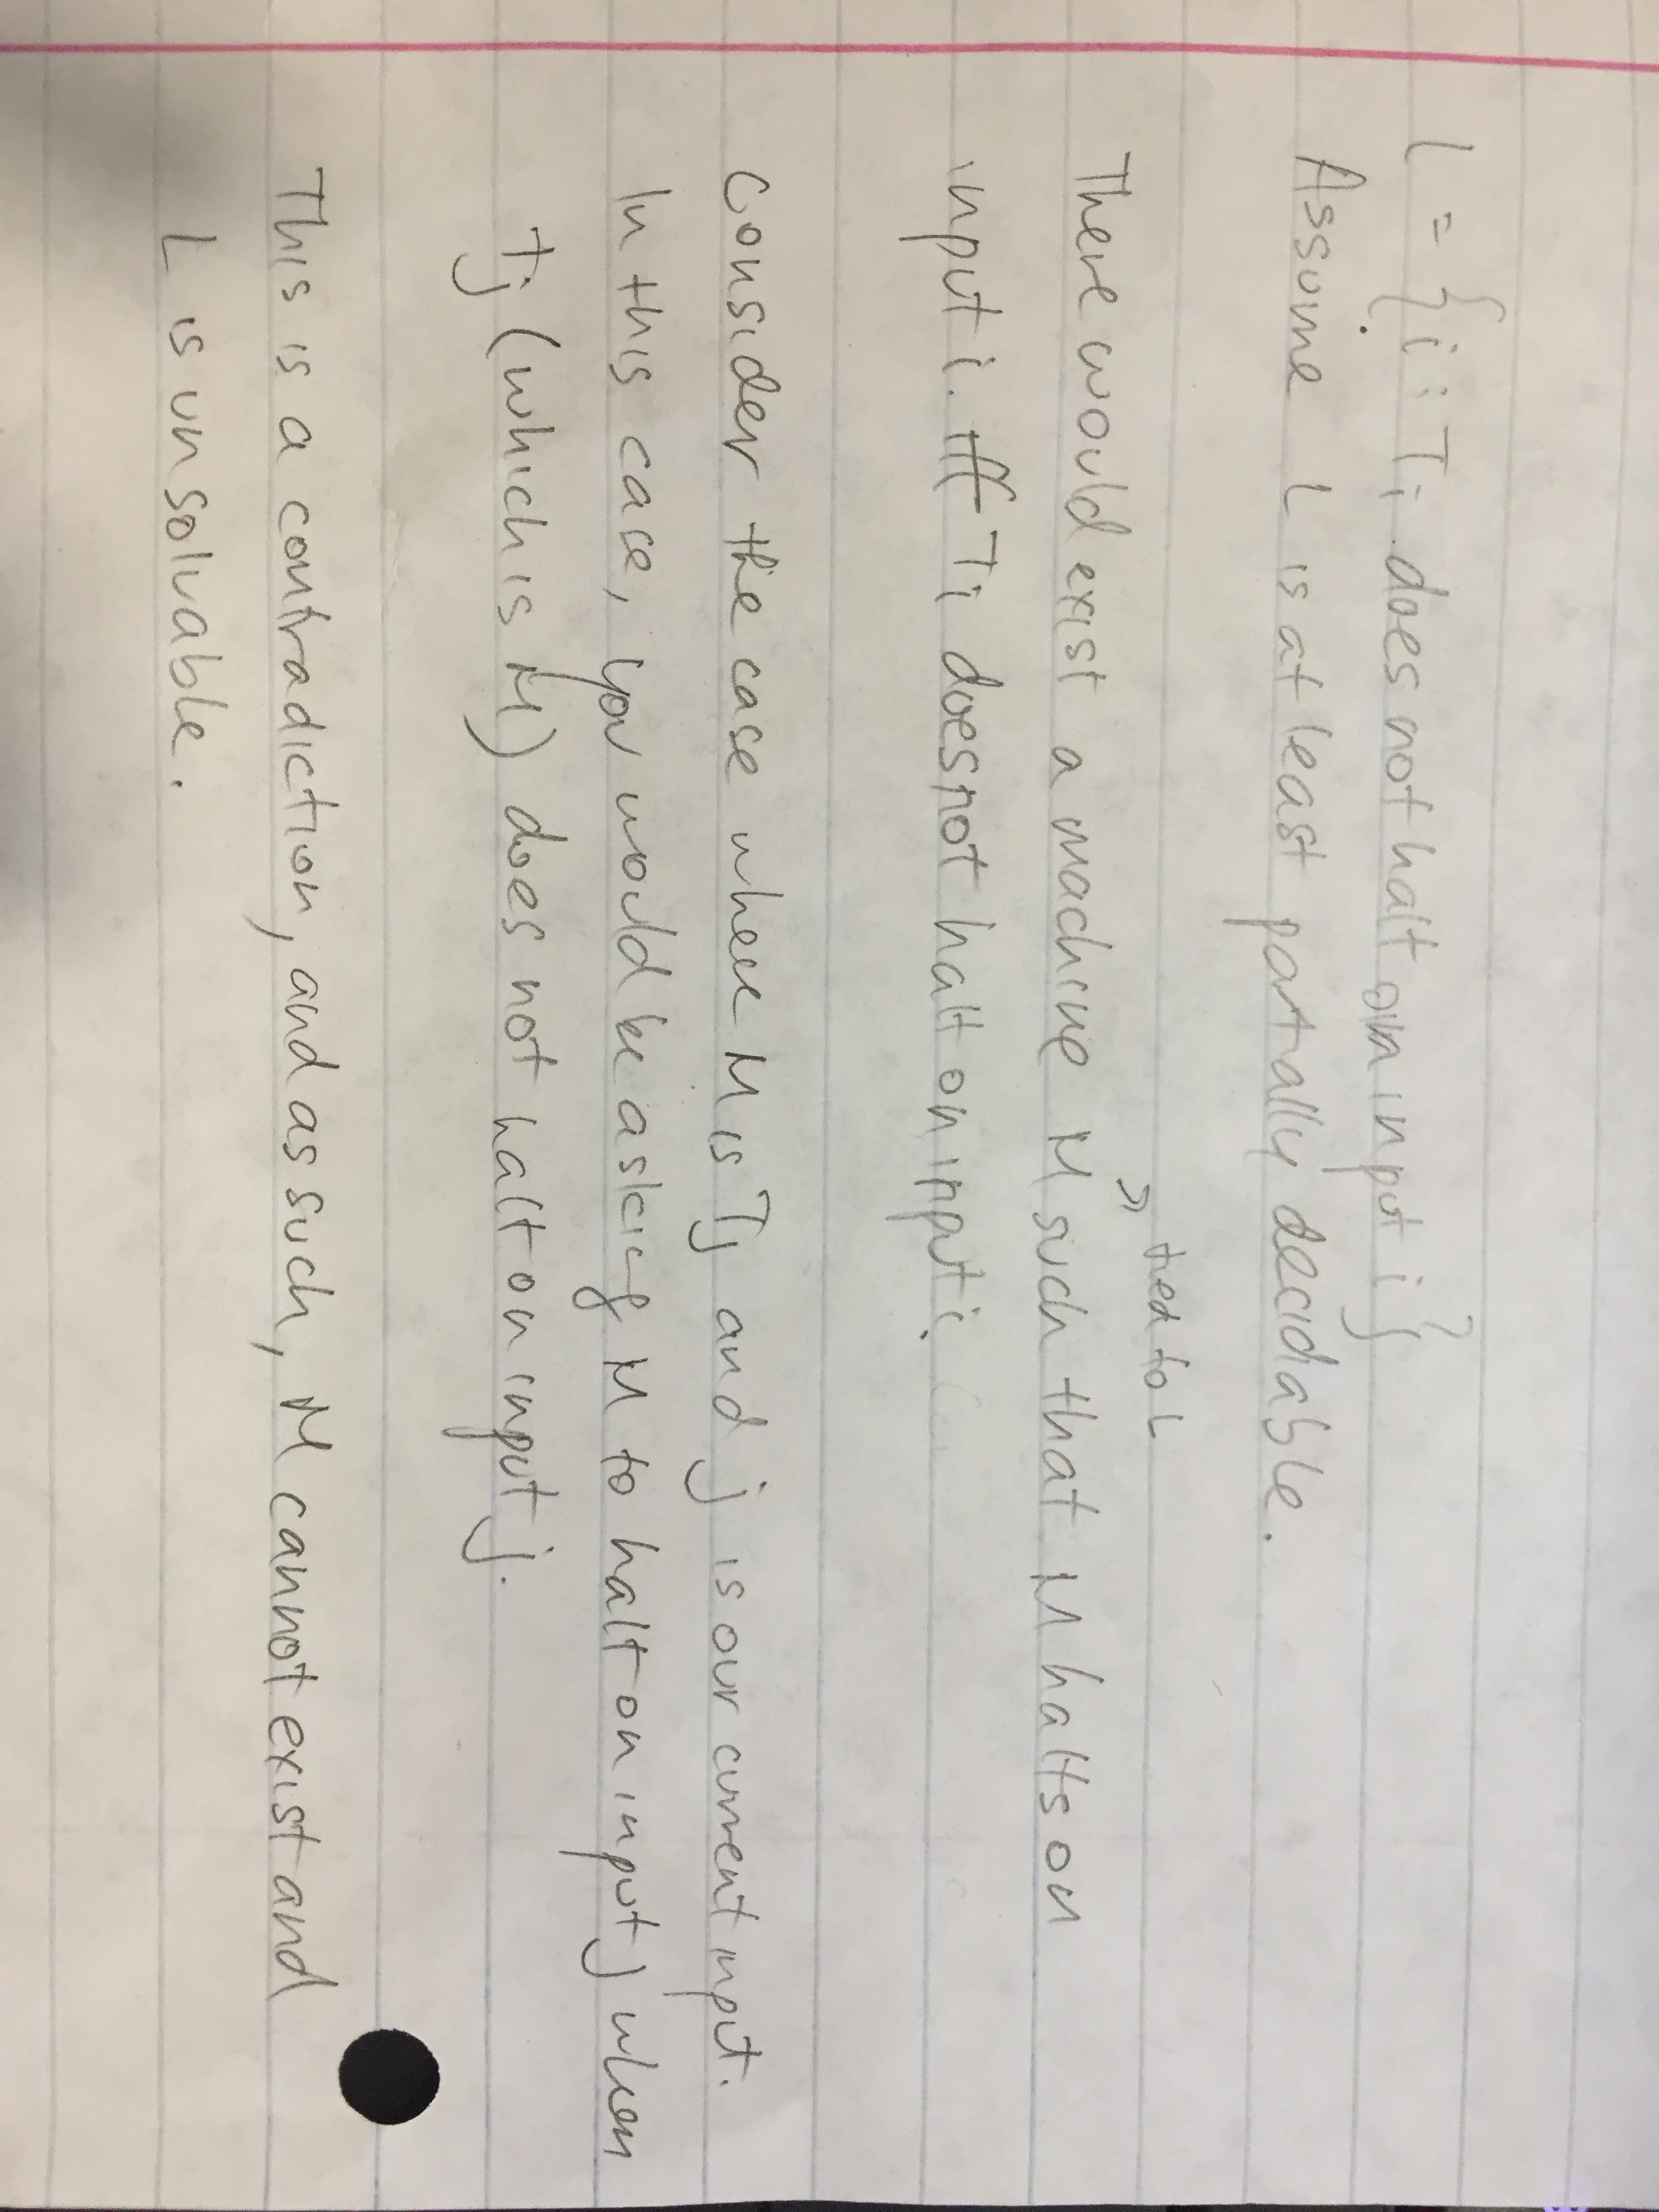 L = { i : Ti does not halt on input i }
Assume L is at least partially decidable.
tied to L
There would exist a machine M such that M halts on
input i. iff Ti does not halt on input i.
Consider the case where M is Tj and j is our current input.
In this case, you would be asking M to halt on input j when
Tj (which is M) does not halt on input j.
This is a contradiction, and as such, M cannot exist and
L is unsolvable.